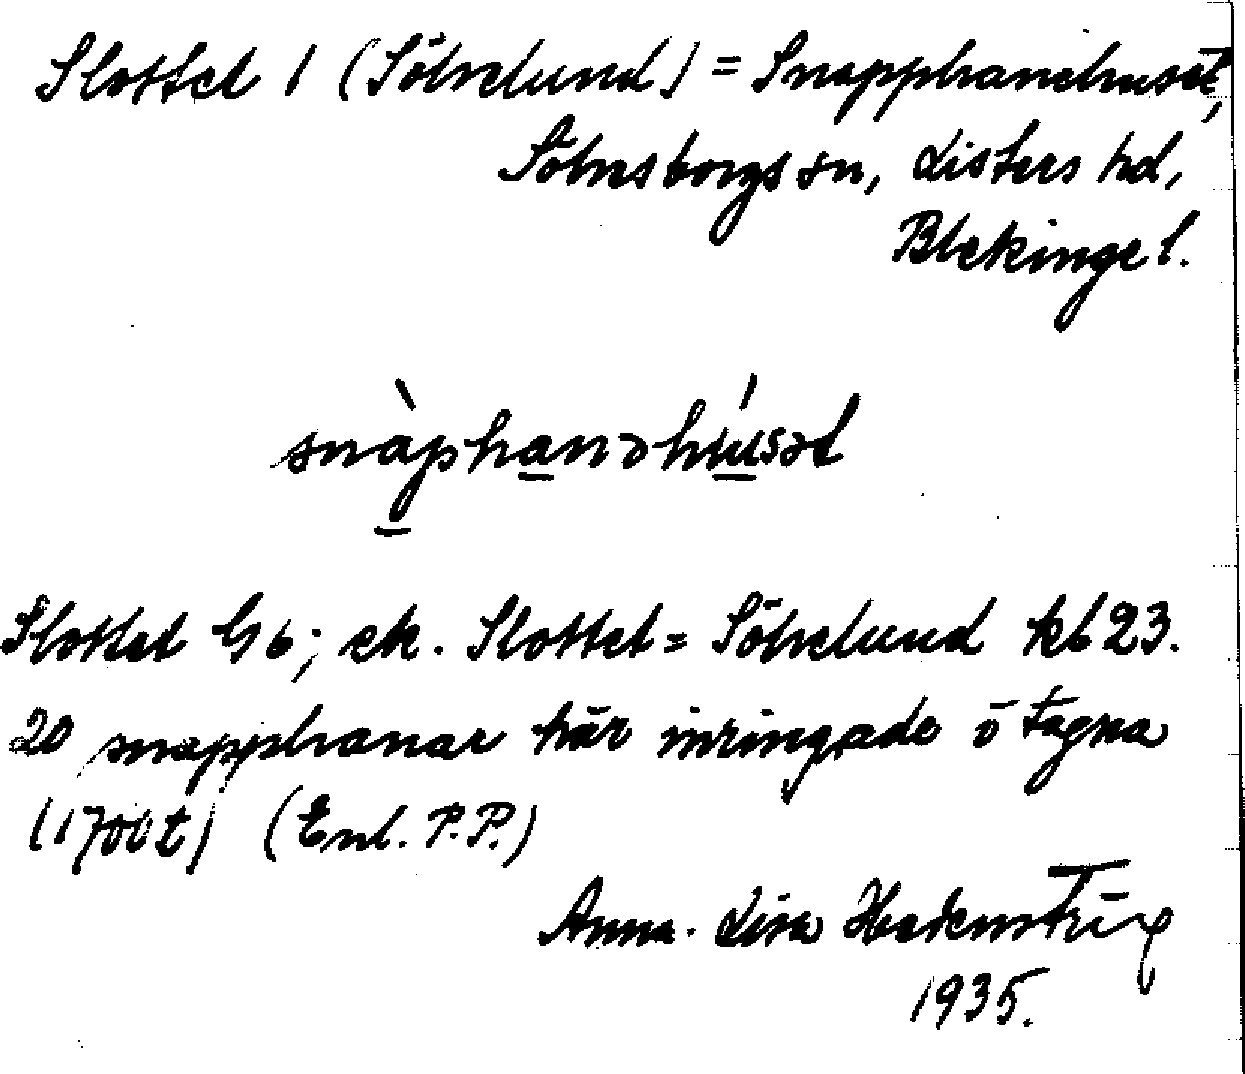 Slottet 1 (Sölvelund) = Snapphanehuset,
Sölvesborgs sn, Listers hd,
Blekinge l.
snàphanəhúsət
Slottet G 6; ek. Slottet = Sölvelund kb 23.
20 snapphanar här inringade ö tagna
(1700t) (Enl. P.P.)
Anna-Lisa
1935.